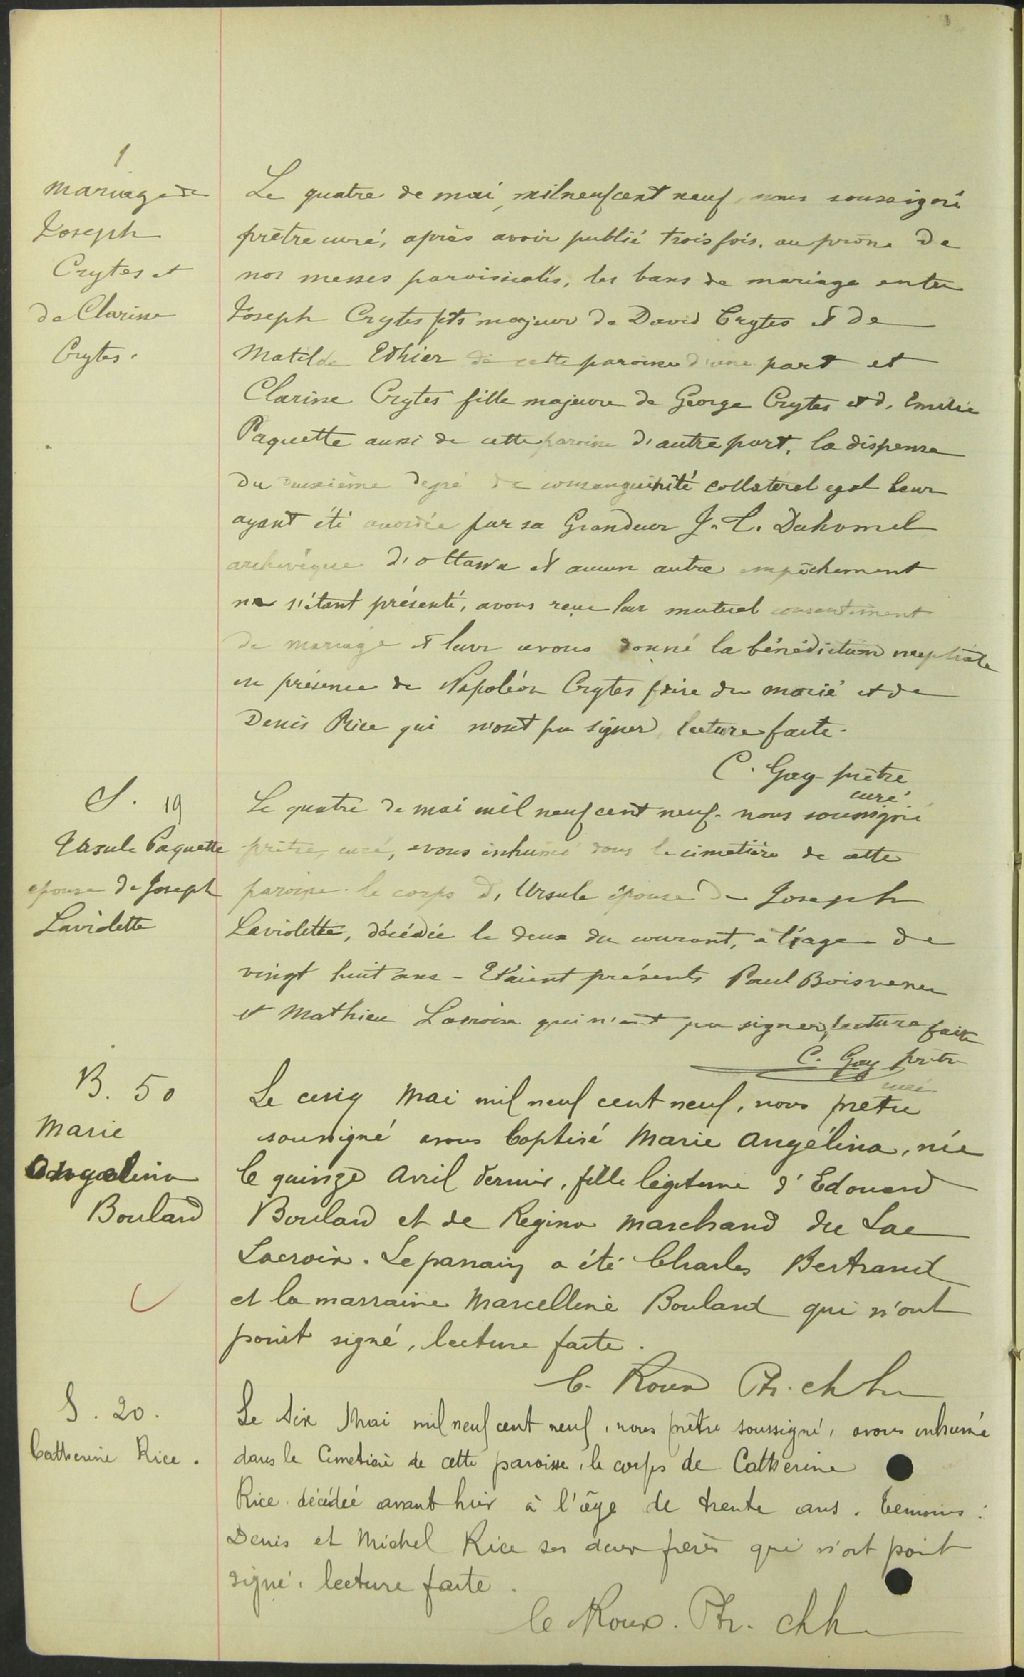 1
Mariage de
Joseph
Crytes et
de Clarine
Crytes.
Le quatre de mai, mil neuf cent neuf nous soussigné
prêtre curé, après avoir publié trois fois, au prône de
nos messes paroissiales, les bans de mariage entre
Joseph Crytes fils majeur de David Crytes et de
Matilde Ethier de cette paroisse d'une part et
Clarine Crytes fille majeure de George Crytes et d'Emilie
Paquette aussi de cette paroisse d'autre part, la dispense
du deuxième degré de consanguinité collatéral égal leur
ayant été accordée par sa Grandeur J. T. Duhamel
archevêque d'Ottawa et aucun autre empêchement
ne s'étant présenté, avons reçu leur mutuel consentement
de mariage et leur avons donné la bénédiction nuptiale
en présence de Napoléon Crytes frère du marié et de
Denis Rice qui n'ont pu signer, lecture faite.
C. Gay prêtre
curé
S. 19
Ursule Paquette
epouse de Joseph
Laviolette
Le quatre de mai mil neuf cent neuf. nous soussigné
prêtre, curé, avons inhumé dans le cimetière de cette
paroisse le corps d'Ursule épouse de Joseph
Laviolette, décédée le deux du courant, à l'âge de
vingt huit ans - Etaient présents Paul Boisvenu
et Mathieu Lacroix qui n'ont pu signer, lecture faite
C. Gay prêtre
curé
B. 50
Marie
Angelina
Boulard
Le cinq Mai mil neuf cent neuf, nous prêtre
soussigné avons baptisé Marie Angélina, née
le quinze Avril dernier, fille légitime d'Edouard
Boulard et de Regina Marchand du Lac
Lacroix. Le parrain a été Charles Bertrand
et la marraine Marcelline Boulard qui n'ont
point signé, lecture faite.
C. Roux Ptr. ch h
S. 20.
Catherine Rice.
Le Six Mai mil neuf cent neuf, nous prêtre soussigné, avons inhumé
dans le Cimetière de cette paroisse, le corps de Catherine
Rice décédée avant hier à l'âge de trente ans. Temoins:
Denis et Michel Rice ses deux frères qui n'ont point
signé. lecture faite.
C Roux. Ptr. ch h